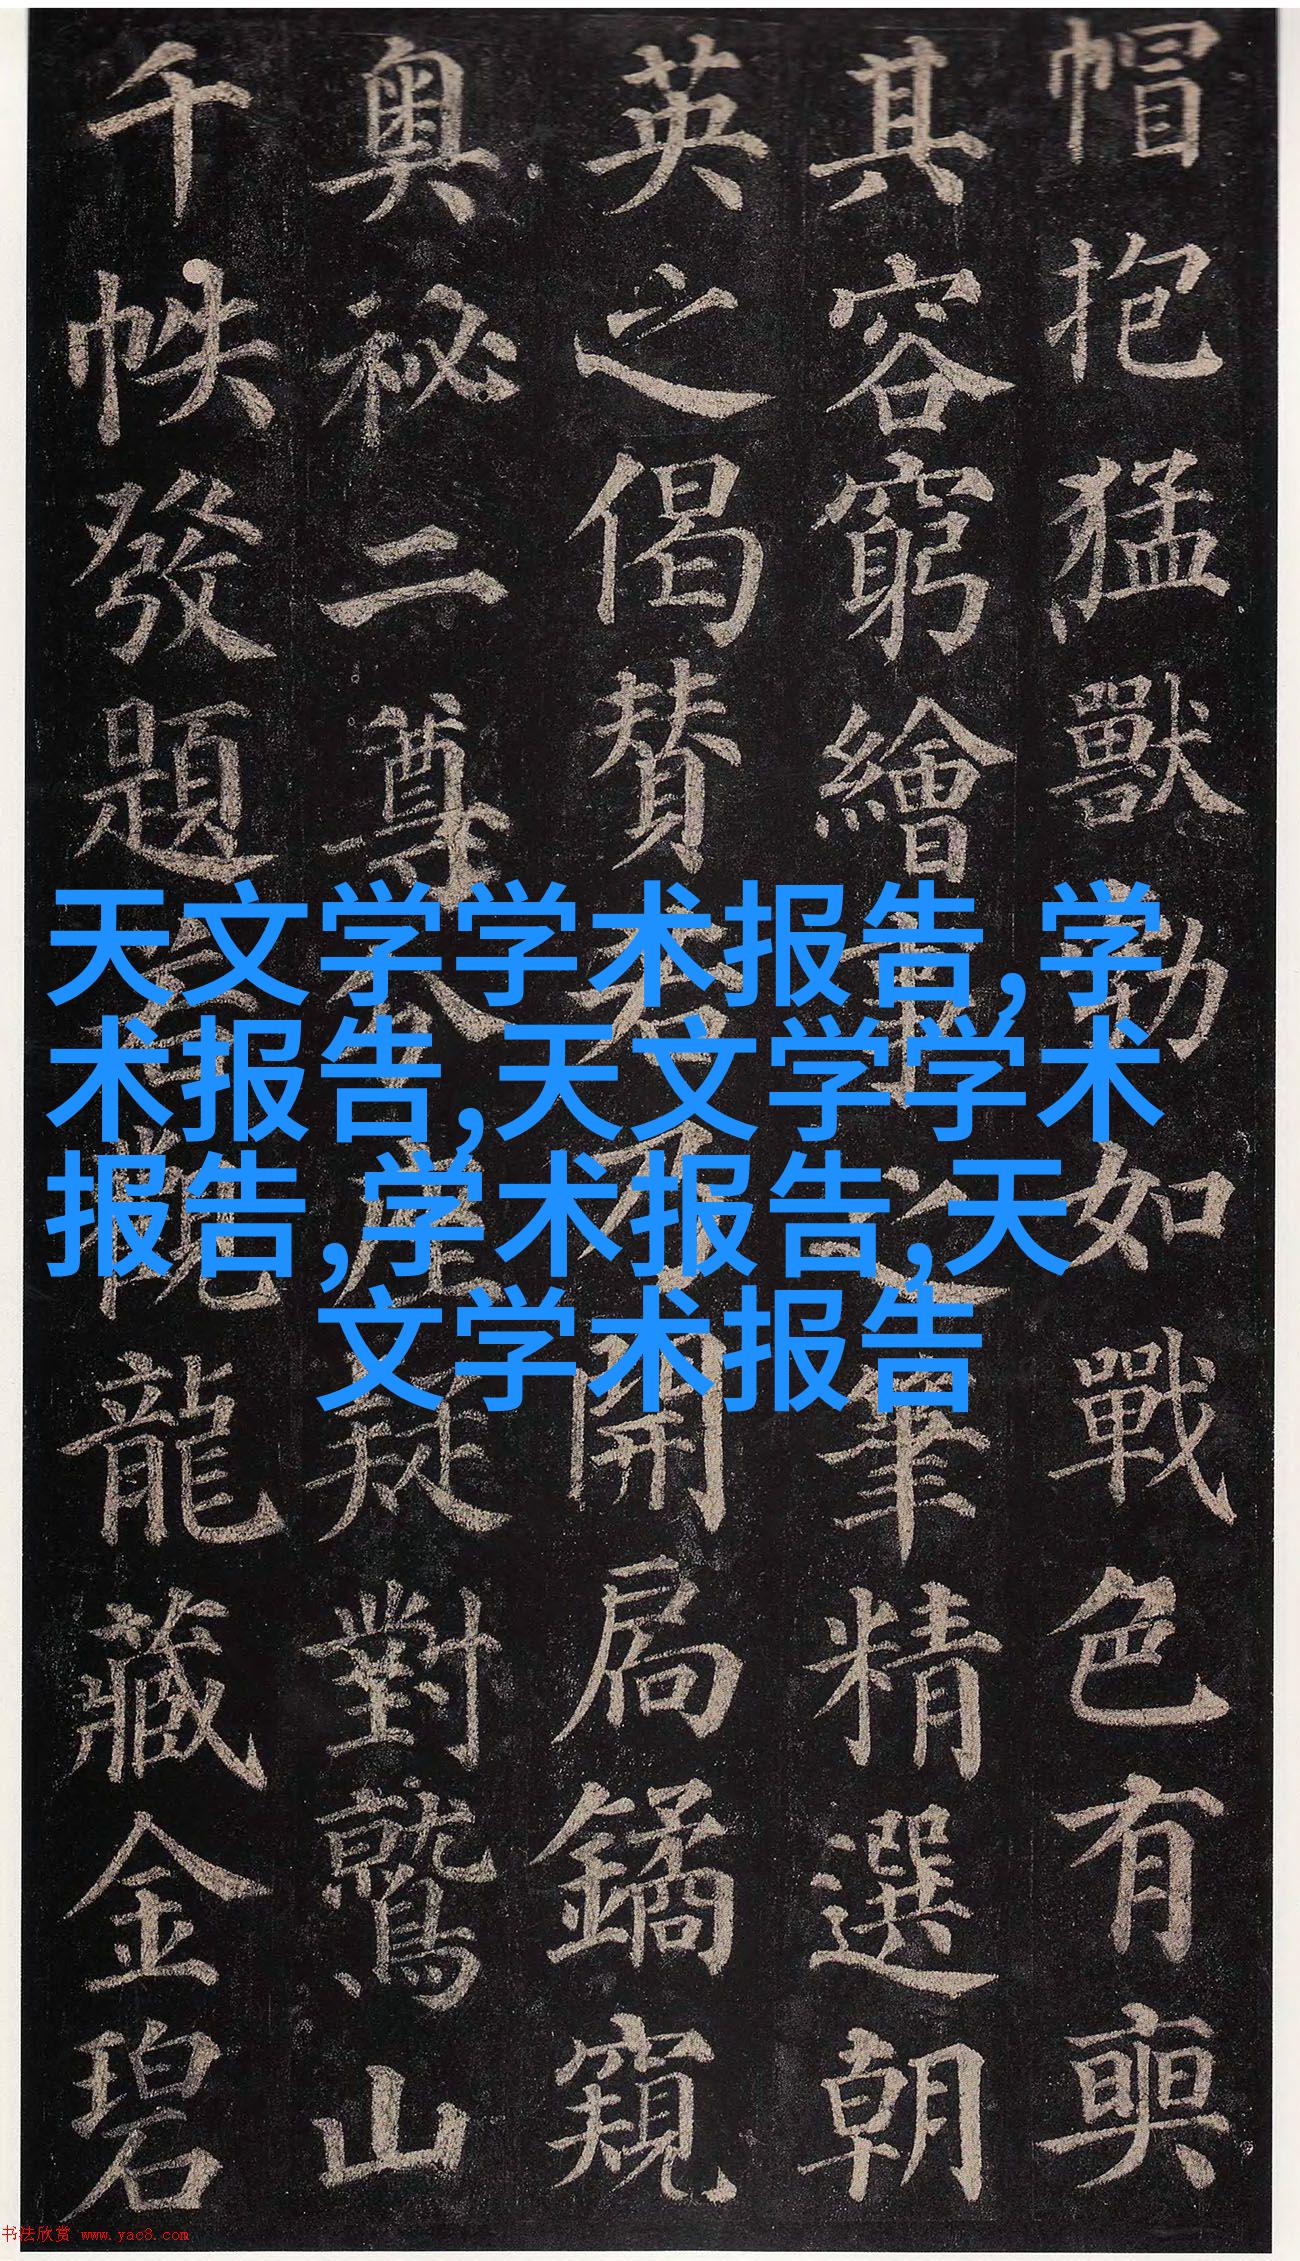 帽抱猛獸如戰色有奭
其容窮繪事之筆精選朝
英之偈贊若乃開扃鐍窺
奥祕二尊座疑對鷲山
千帙發題若觀龍藏金碧
天文学学术报告,学
术报告,天文学学术
报告,学术报告,天
文学术报告
书法欣赏 www.yac8.com